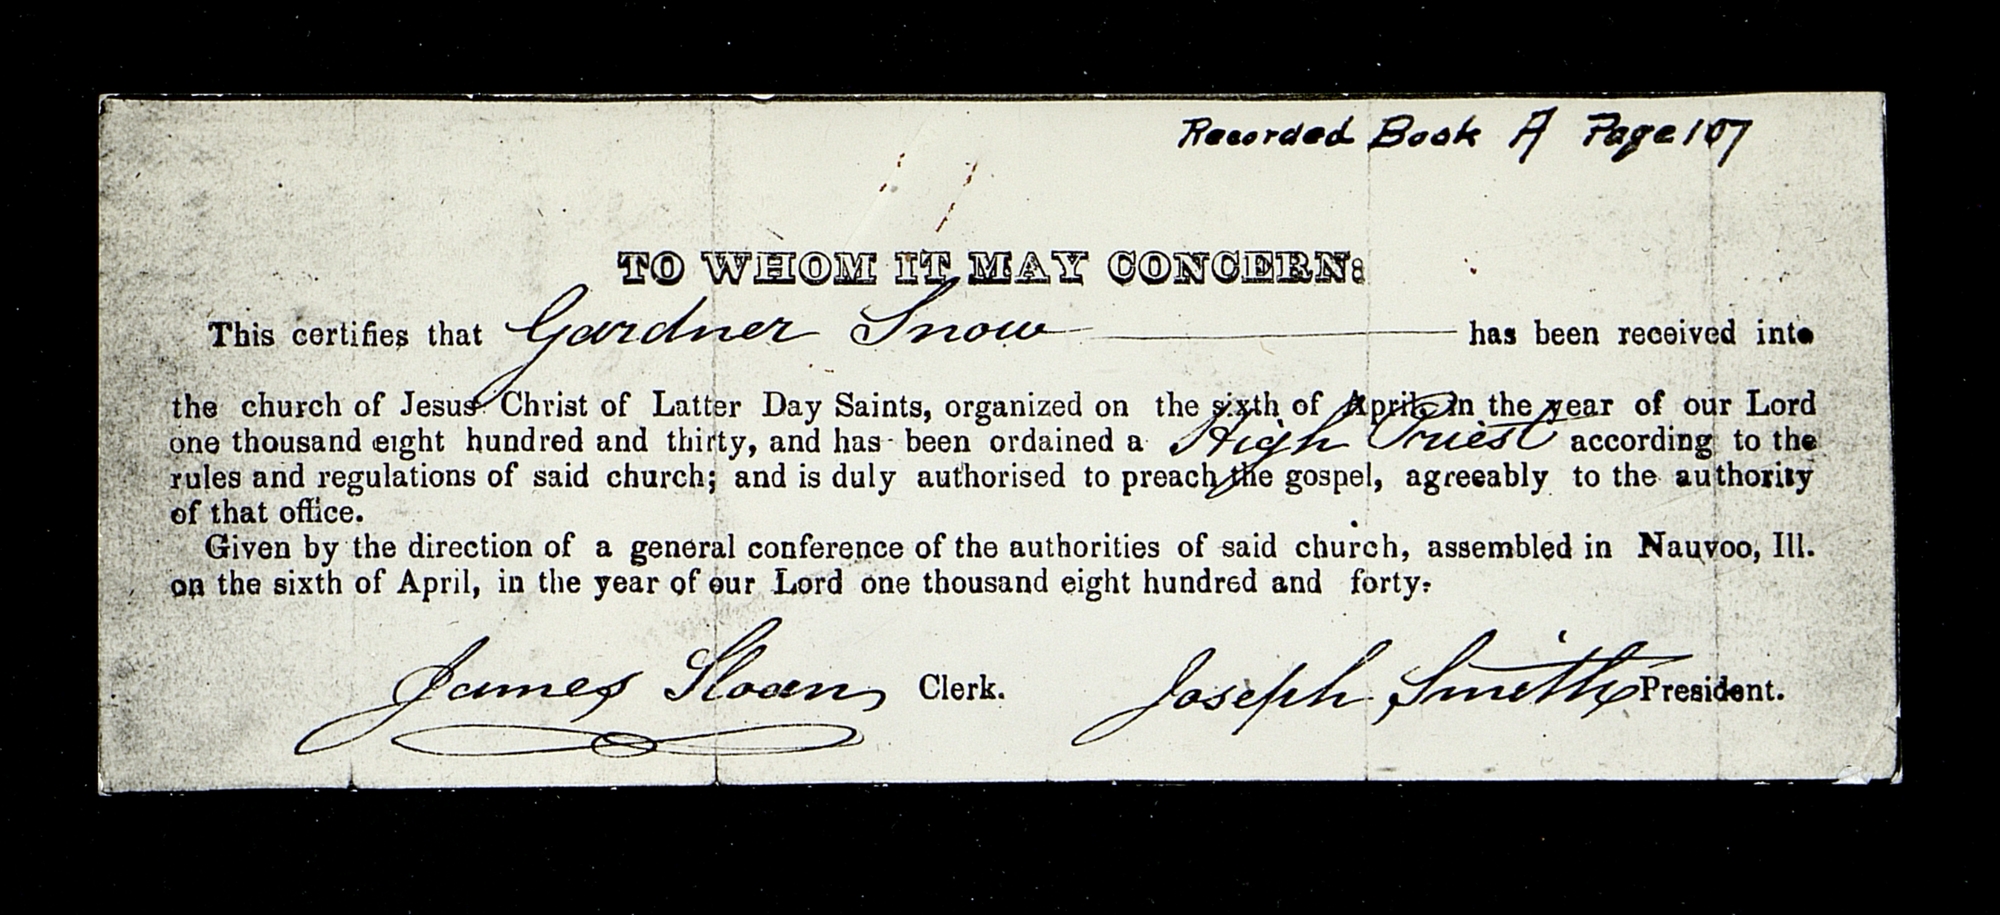 Recorded Book A Page 107
TO WHOM IT MAY CONCERN:
This certifies that Gardner Snow has been received into
the church of Jesus Christ of Latter Day Saints, organized on the sixth of April, in the year of our Lord
one thousand eight hundred and thirty, and has been ordained a High Priest according to the
rules and regulations of said church; and is duly authorised to preach the gospel, agreeably to the authority
of that office.
Given by the direction of a general conference of the authorities of said church, assembled in Nauvoo, Ill.
on the sixth of April, in the year of our Lord one thousand eight hundred and forty.
James Sloan, Clerk. Joseph Smith President.